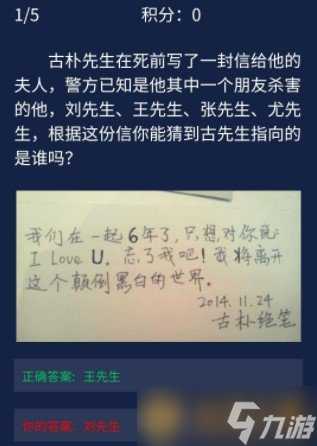 1/5 积分：0
古朴先生在死前写了一封信给他的
夫人，警方已知是他其中一个朋友杀害
的他，刘先生、王先生、张先生、尤先
生，根据这份信你能猜到古先生指向的
是谁吗？
我们在一起6年了，只想对你说：
I Love U。忘了我吧！我将离开
这个颠倒黑白的世界。
2014.11.24
古朴绝笔
正确答案：王先生
你的答案：刘先生
九游